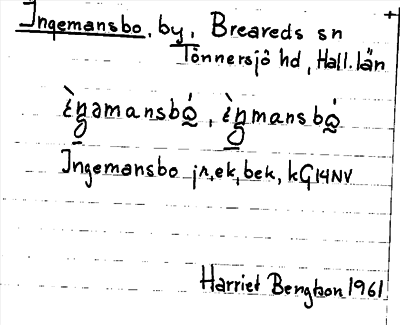 Ingemansbo, by, Breareds sn
Tönnersjö hd, Hall. län
ìŋəmansbó̲, ìŋmansbó̲
Ingemansbo jr, ek, bek, kG14NV
Harriet Bengtson 1961